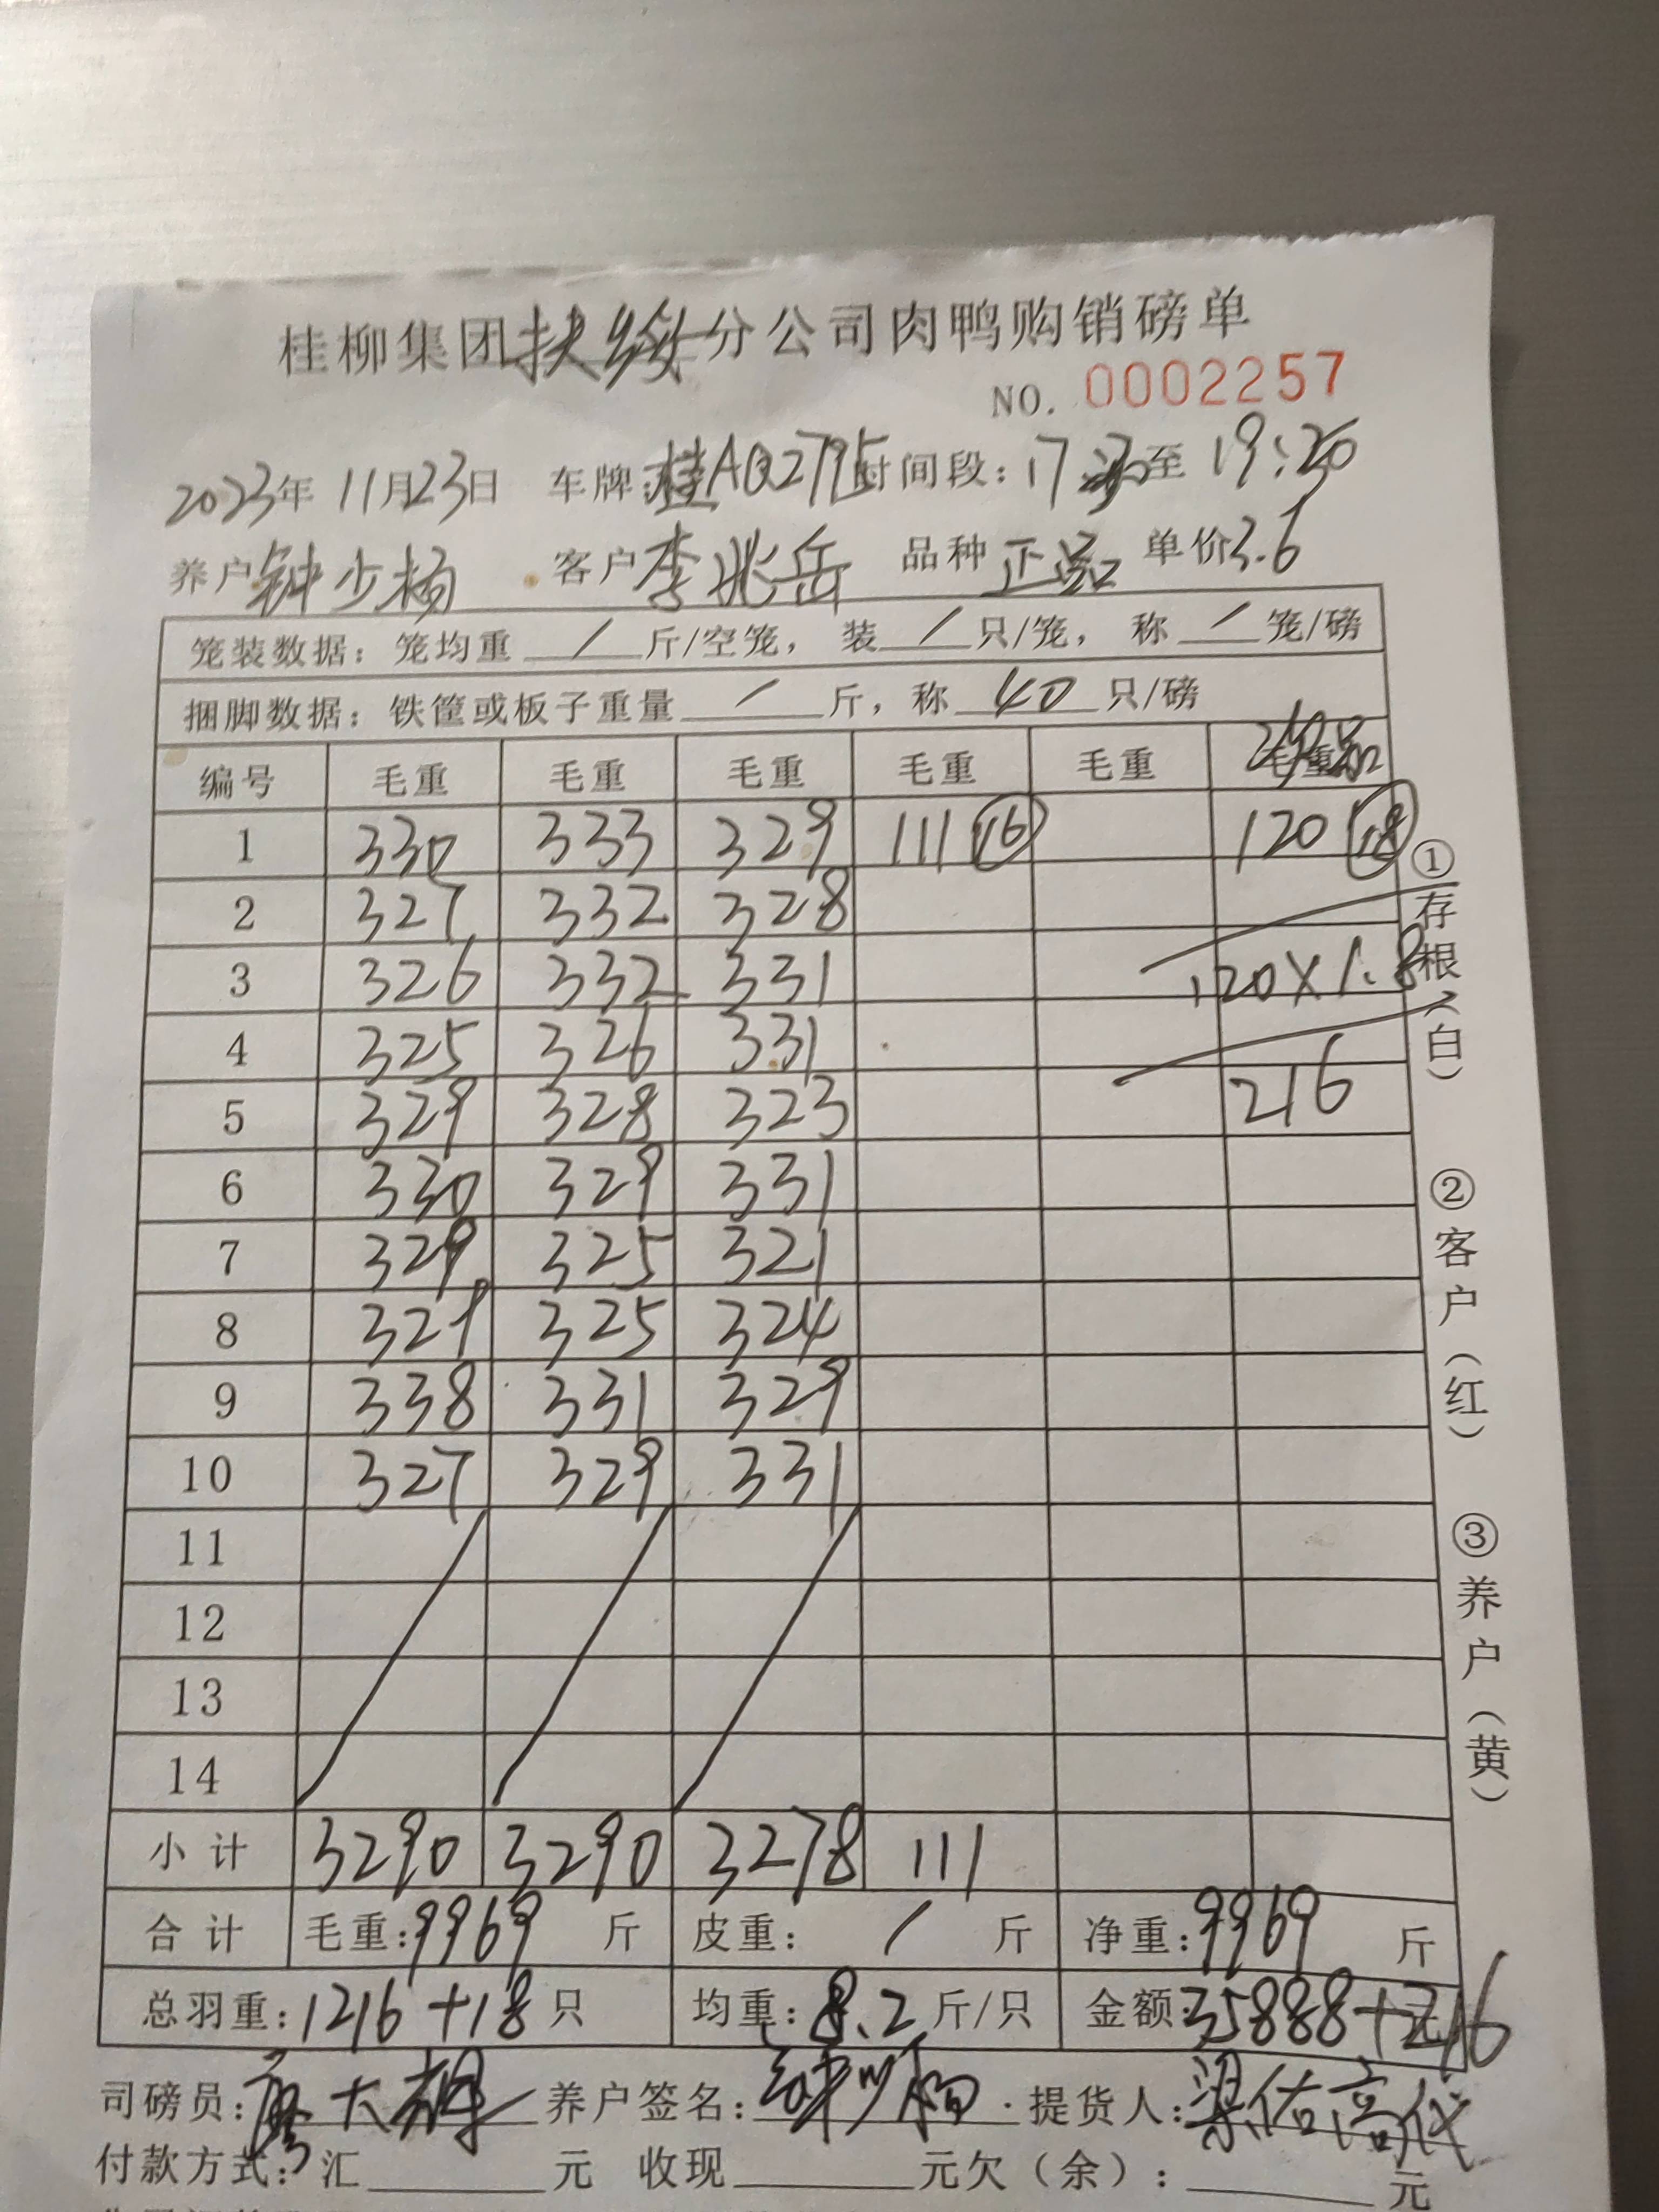 桂柳集团扶绥分公司肉鸭购销磅单
NO. 0002257
2023年 11月23日 车牌:桂AQ2795 时间段: 17 至 19:20
养户 钟少杨 客户 李兆岳 品种 正品 单价 3.6
笼装数据: 笼均重 / 斤/空笼, 装 / 只/笼, 称 / 笼/磅
捆脚数据: 铁筐或板子重量 / 斤, 称 40 只/磅
编号 毛重 毛重 毛重 毛重 毛重 毛重 次品
1 330 333 329 111 16 120 18
2 327 332 328
3 326 332 331 120×1.8
4 325 326 331
5 329 328 323 216
6 330 329 331
7 329 325 321
8 329 325 324
9 338 331 329
10 327 329 331
11
12
13
14
小计 3290 3290 3278 111
合计 毛重: 9969 斤 皮重: / 斤 净重: 9969 斤
总羽重: 1216+18 只 均重: 8.2 斤/只 金额: 35888+216 元
司磅员: 廖大 养户签名: 钟少杨 提货人: 梁佑高代
付款方式: 汇 元 收现 元 欠（余）: 元
①存根（白）
②客户（红）
③养户（黄）